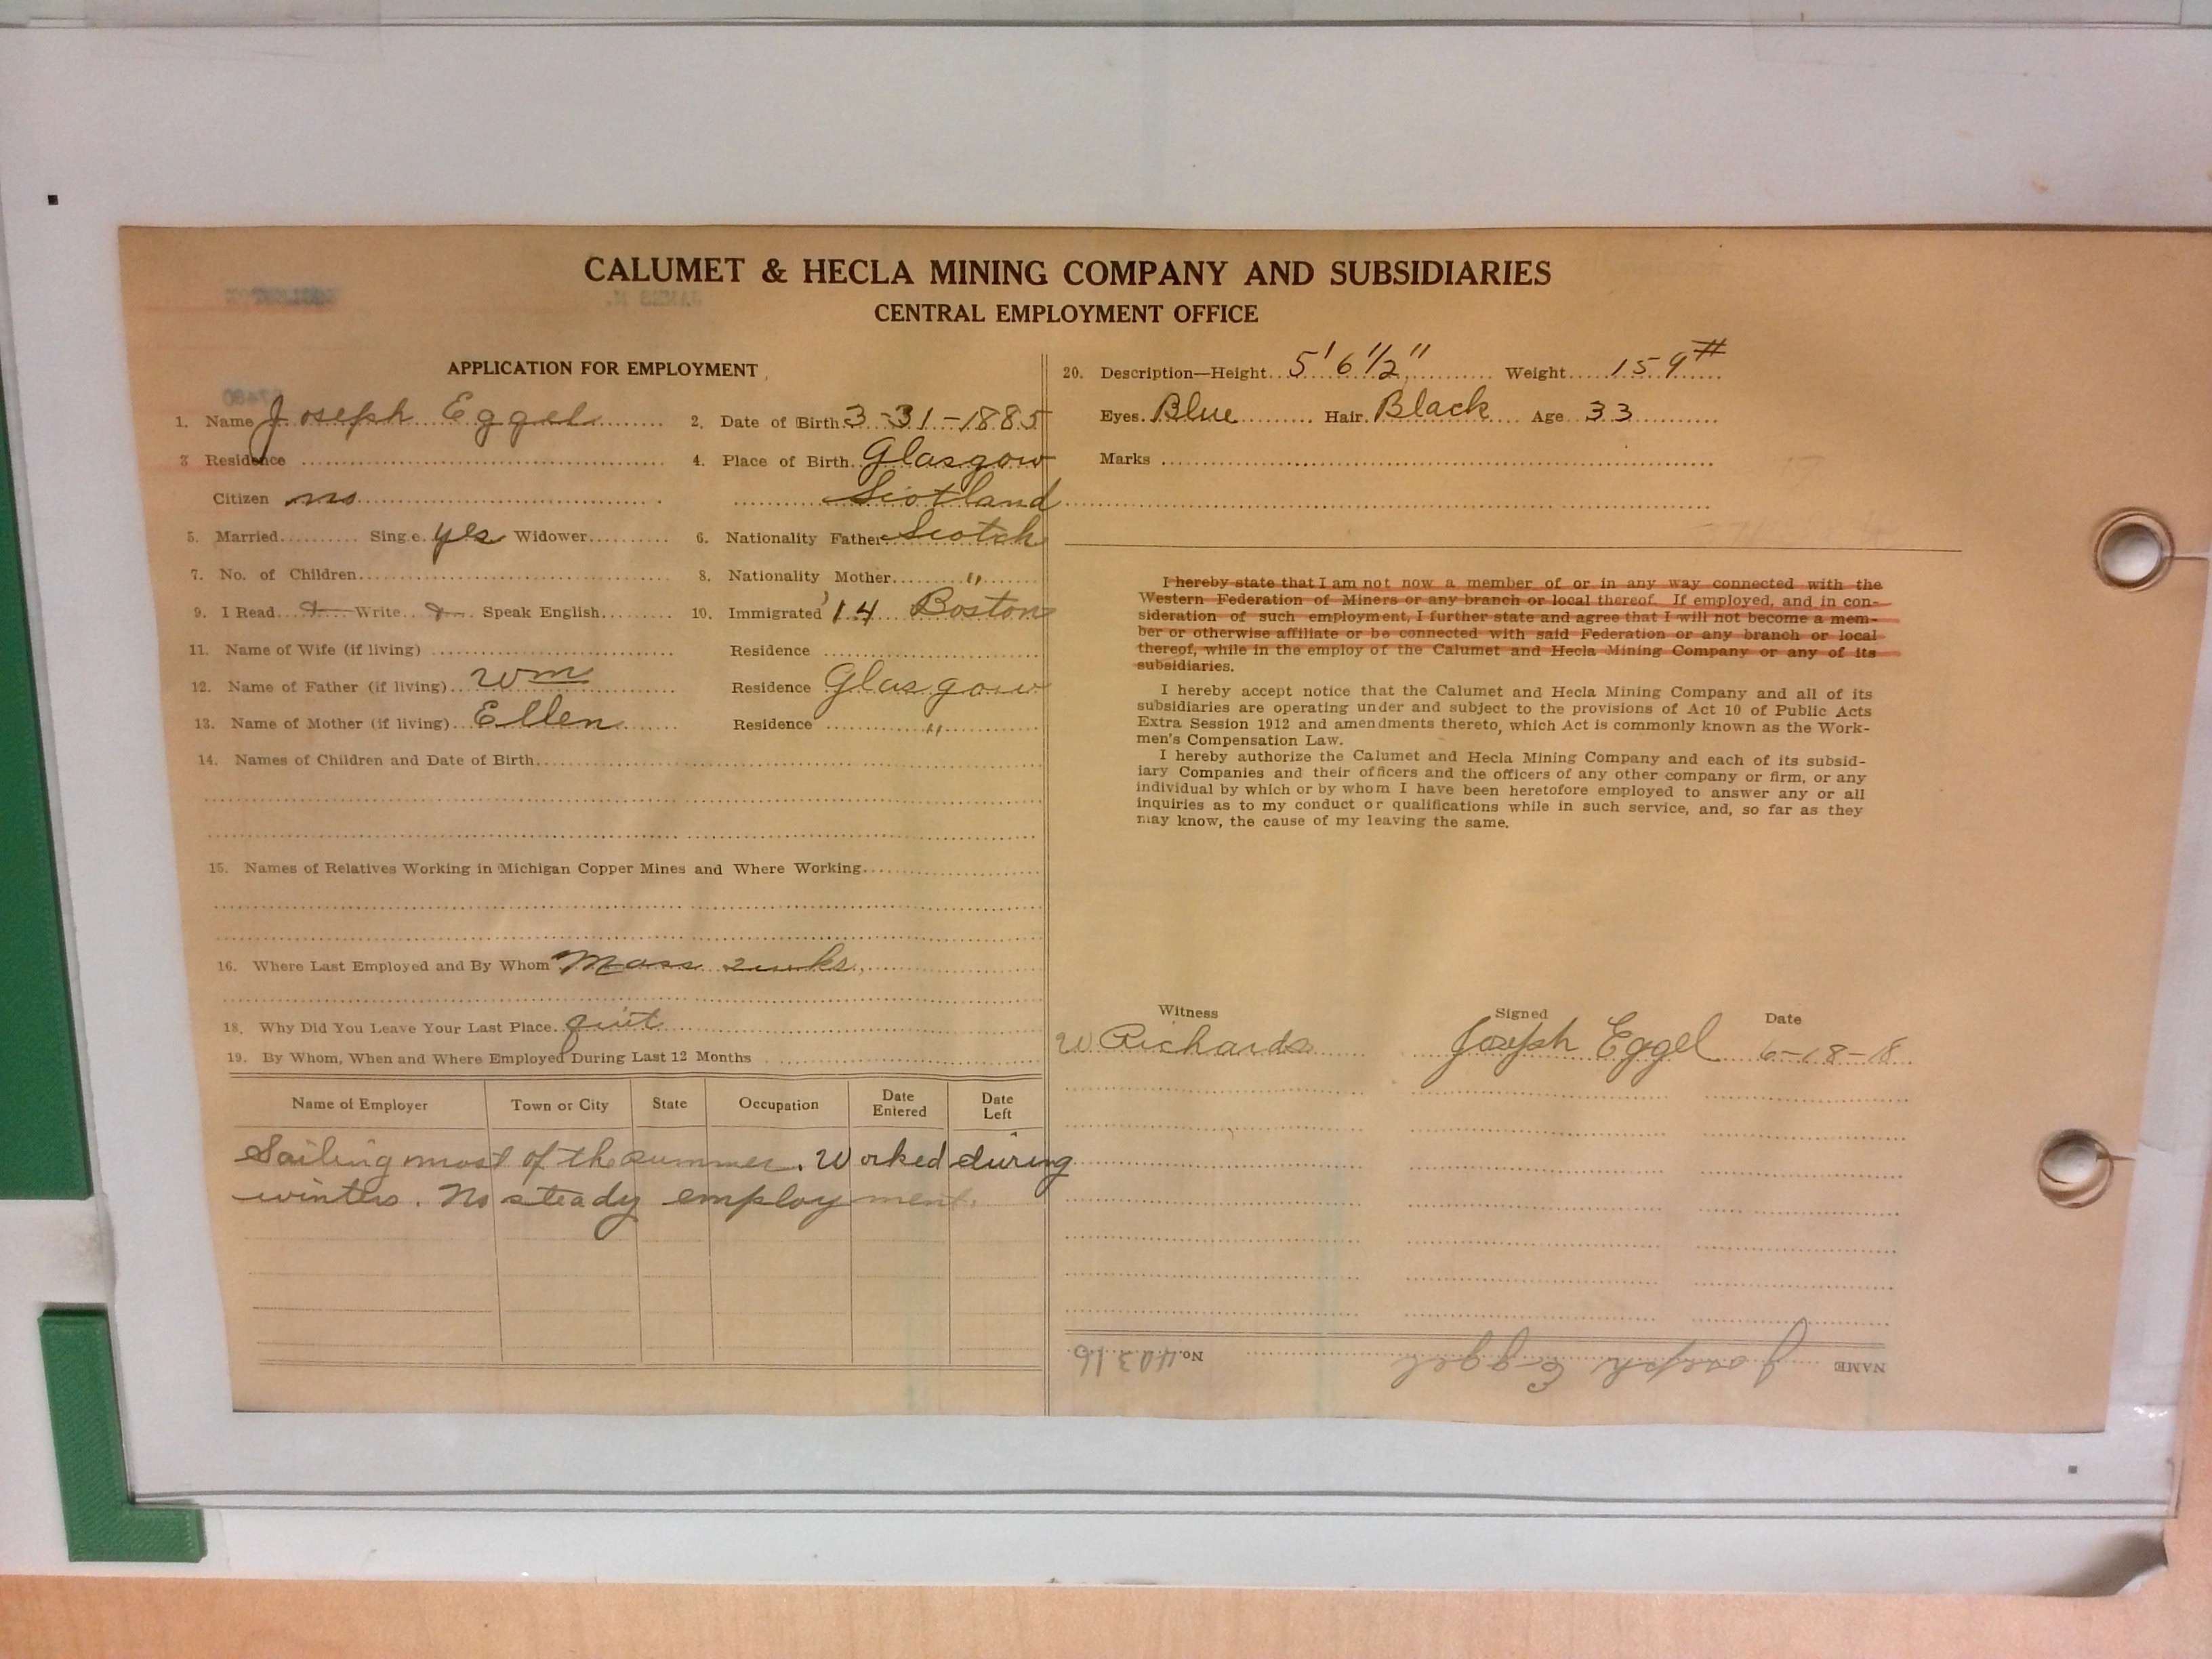 CALUMET & HECLA MINING COMPANY AND SUBSIDIARIES
CENTRAL EMPLOYMENT OFFICE
APPLICATION FOR EMPLOYMENT
1. Name Joseph Eggel 2. Date of Birth 3-31-1885
3 Residence 4. Place of Birth. Glasgow
Citizen no Scotland
5. Married Sing.e. yes Widower 6. Nationality Father Scotch
7. No. of Children 8. Nationality Mother "
9. I Read Write Speak English 10. Immigrated '14 Boston
11. Name of Wife (if living) Residence
12. Name of Father (if living) Wm Residence Glasgow
13. Name of Mother (if living) Ellen Residence "
14. Names of Children and Date of Birth
15. Names of Relatives Working in Michigan Copper Mines and Where Working
16. Where Last Employed and By Whom Mass 2 wks.
18. Why Did You Leave Your Last Place. quit
19. By Whom, When and Where Employed During Last 12 Months
Name of Employer Town or City State Occupation Date Entered Date Left
Sailing most of the summer. Worked during
winters. No steady employment.
20. Description—Height 5' 6 1/2" Weight 159#
Eyes. Blue Hair. Black Age 33
Marks
I hereby state that I am not now a member of or in any way connected with the
Western Federation of Miners or any branch or local thereof. If employed, and in con-
sideration of such employment, I further state and agree that I will not become a mem-
ber or otherwise affiliate or be connected with said Federation or any branch or local
thereof, while in the employ of the Calumet and Hecla Mining Company or any of its
subsidiaries.
I hereby accept notice that the Calumet and Hecla Mining Company and all of its
subsidiaries are operating under and subject to the provisions of Act 10 of Public Acts
Extra Session 1912 and amendments thereto, which Act is commonly known as the Work-
men's Compensation Law.
I hereby authorize the Calumet and Hecla Mining Company and each of its subsid-
iary Companies and their officers and the officers of any other company or firm, or any
individual by which or by whom I have been heretofore employed to answer any or all
inquiries as to my conduct or qualifications while in such service, and, so far as they
may know, the cause of my leaving the same.
Witness Signed Date
W Richards Joseph Eggel 6-18-18
NAME Joseph Eggel No. 40316